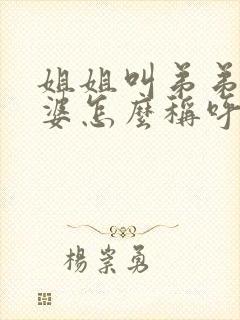 姐姐叫弟弟
婆怎麼稱呼
楊崇勇